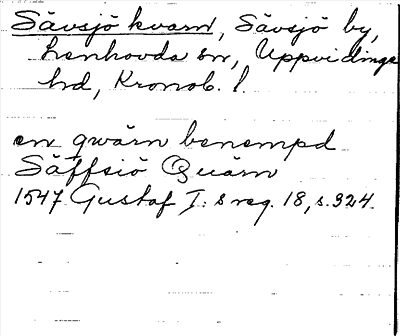 Sävsjö kvarn, Sävsjö by,
Lenhovda sn, Uppvidinge
hd, Kronob. l.
en qwärn benempd
Säffsiö Quärn
1547 Gustaf I:s reg. 18, s. 324.